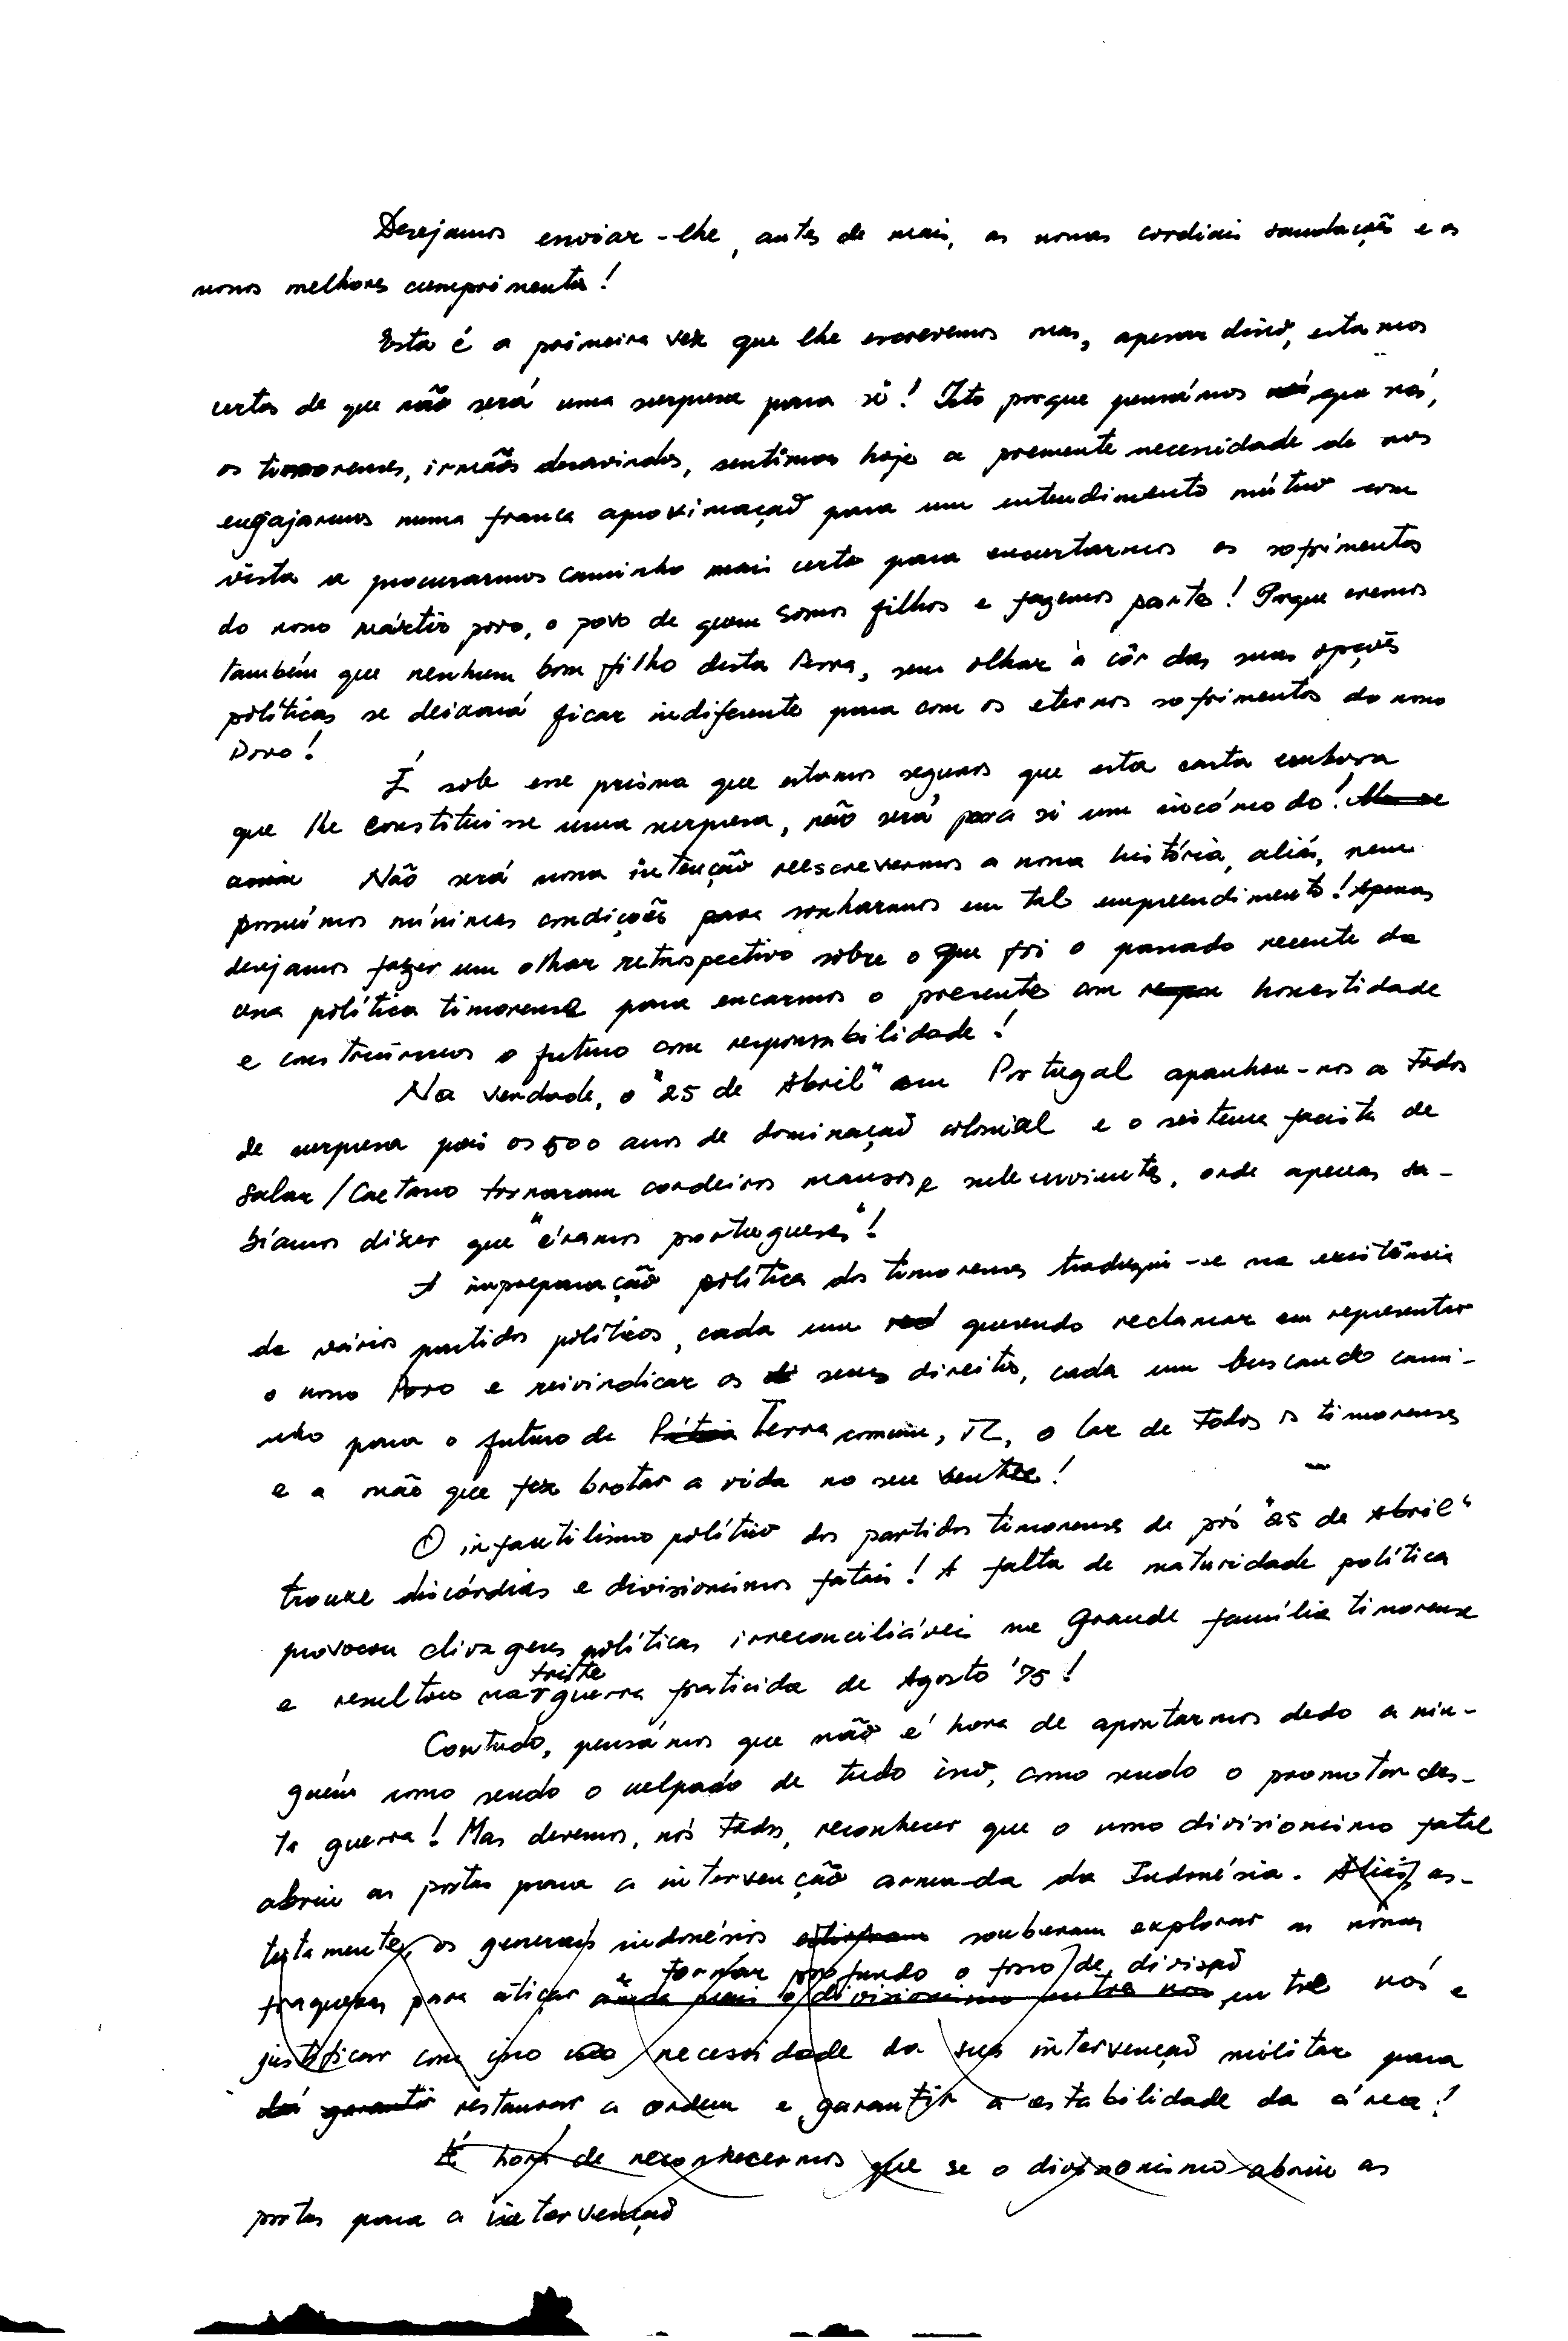 Desejamos enviar-lhe, antes de mais, as nossas cordiais saudações e os
nossos melhores cumprimentos!
Esta é a primeira vez que lhe escrevemos mas, apesar disso, estamos
certos de que não será uma surpresa para si! Isto porque pensámos que nós,
os timorenses, irmãos desavindos, sentimos hoje a premente necessidade de nos
engajarmos numa franca aproximação para um entendimento mútuo com
vista a procurarmos caminho mais certo para encurtarmos os sofrimentos
do nosso mártir povo, o povo de quem somos filhos e fazemos parte! Porque cremos
também que nenhum bom filho desta Terra, sem olhar à côr das suas opções
políticas se deixará ficar indiferente para com os eternos sofrimentos do nosso
Povo!
É sob esse prisma que estamos seguros que esta carta embora
que lhe constituisse uma surpresa, não será para si um incómodo!
Não será nossa intenção reescrevermos a nossa história, aliás, nem
possuímos mínimas condições para sonharmos em tal empreendimento! Apenas
desejamos fazer um olhar retrospectivo sobre o que foi o passado recente da
cena política timorense para encarmos o presente com honestidade
e construirmos o futuro com responsabilidade!
Na verdade, o "25 de Abril" em Portugal apanhou-nos a todos
de surpresa pois os 500 anos de dominação colonial e o sistema facista de
Salazar/Caetano tornaram cordeiros mansos e subservientes, onde apenas sa-
bíamos dizer que "éramos portugueses"!
A impreparação política dos timorenses traduziu-se na existência
de vários partidos políticos, cada um querendo reclamar em representar
o nosso Povo e reivindicar os seus direitos, cada um buscando cami-
nho para o futuro de Pátria Terra comum, TL, o lar de todos os timorenses
e a mão que fez brotar a vida no seu ventre!
O infantilismo político dos partidos timorenses de pós "25 de Abril"
trouxe discórdias e divisionismos fatais! A falta de maturidade política
provocou clivagens políticas irreconciliáveis na Grande família timorense
e resultou na triste guerra fraticida de Agosto '75!
Contudo, pensámos que não é hora de apontarmos dedo a nin-
guém como sendo o culpado de tudo isso, como sendo o promotor des-
ta guerra! Mas devemos, nós todos, reconhecer que o nosso divisionismo fatal
abriu as portas para a intervenção armada da Indonésia. Aliás, as-
tutamente, os generais indonésios souberam explorar as nossas
e tornar profundo o fosso de divisão
fraquezas para atiçar ainda mais o divisionismo entre nós entre nós e
justificar com isso necessidade da sua intervenção militar para
garantir restaurar a ordem e garantir a estabilidade da área!
É hora de reconhecermos que se o divisionismo abriu as
portas para a intervenção